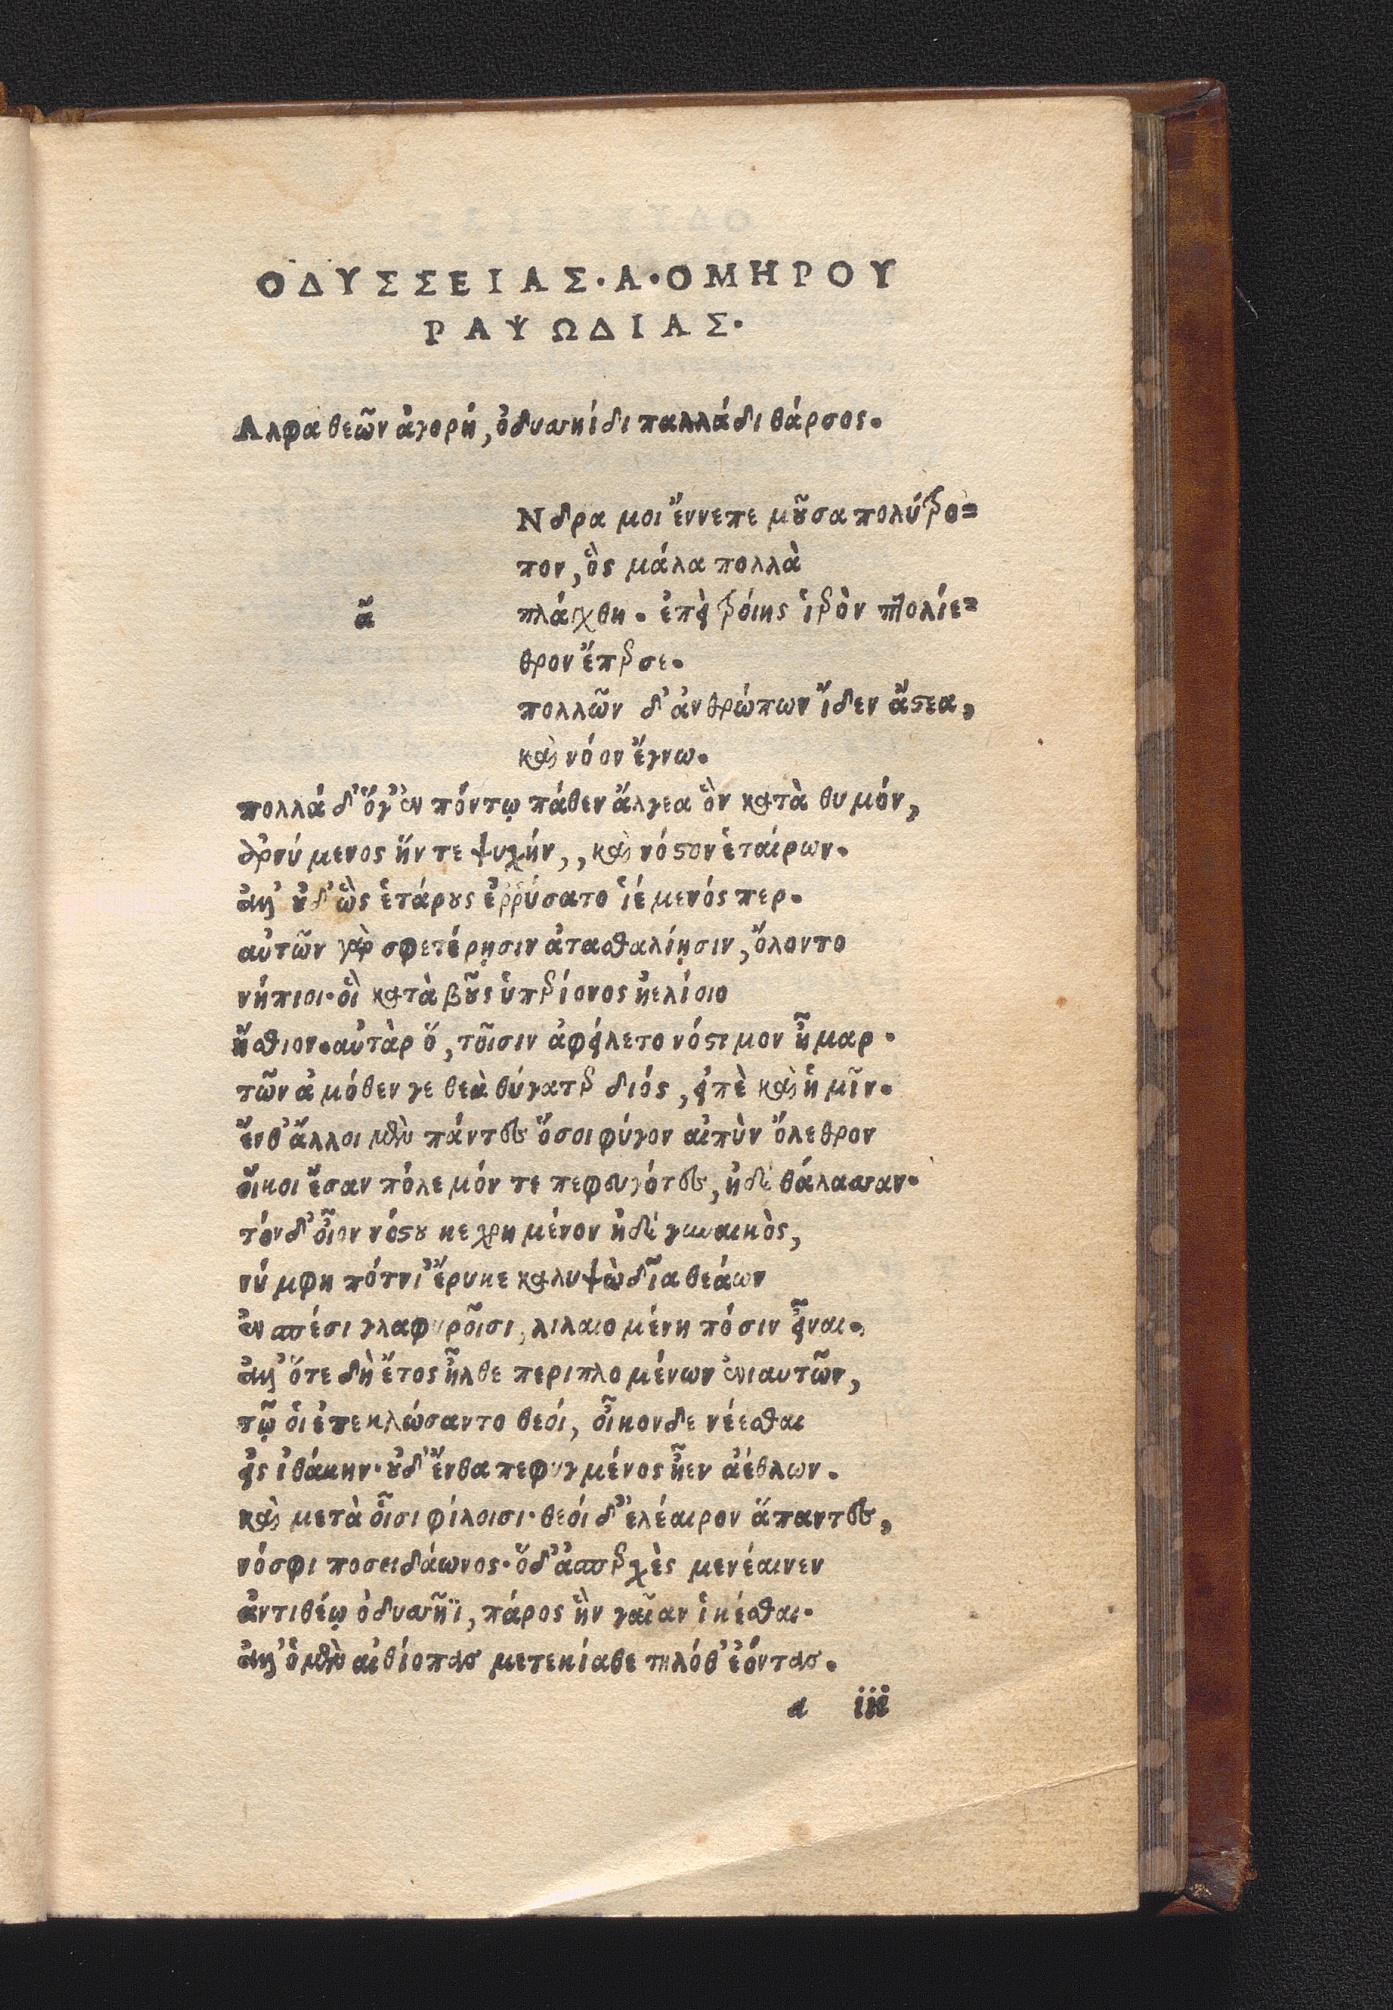 ΟΔΥΣΣΕΙΑΣ·Α·ΟΜΗΡΟΥ
ΡΑΨΩΔΙΑΣ·
Αλφα θεῶν ἀγορή, ὀδυσσηίδι παλλάδι θάρσος.
Νδρα μοι ἔννεπε μοῦσα πολύτρο=
πον, ὃς μάλα πολλὰ
ἄ
πλάγχθη. ἐπεὶ τροίης ἱερὸν πτολίε=
θρον ἔπερσε.
πολλῶν δ' ἀνθρώπων ἴδεν ἄστεα,
καὶ νόον ἔγνω.
πολλά δ' ὅγ' ἐν πόντῳ πάθεν ἄλγεα ὃν κατὰ θυμόν,
ἀρνύμενος ἥν τε ψυχήν,, καὶ νόστον ἑταίρων.
ἀλλ' οὐδ' ὣς ἑτάρους ἐῤῥύσατο ἱέμενός περ.
αὐτῶν γὰρ σφετέρῃσιν ἀτασθαλίῃσιν, ὄλοντο
νήπιοι·οἳ κατὰ βοῦς ὑπερίονος ἠελίοιο
ἤσθιον.αὐτὰρ ὅ, τοῖσιν ἀφείλετο νόστιμον ἦμαρ.
τῶν ἀμόθεν γε θεὰ θύγατερ διός, εἰπὲ καὶ ἡμῖν.
ἔνθ' ἄλλοι μὲν πάντες ὅσοι φύγον αἰπὺν ὄλεθρον
οἴκοι ἔσαν πόλεμόν τε πεφευγότες, ἠδὲ θάλασσαν.
τόνδ' οἶον νόστου κεχρημένον ἠδὲ γυναικὸς,
νύμφη πότνι' ἔρυκε καλυψὼ δῖα θεάων
ἐν σπέσι γλαφυροῖσι, λιλαιομένη πόσιν εἶναι.
ἀλλ' ὅτε δὴ ἔτος ἦλθε περιπλομένων ἐνιαυτῶν,
τῷ οἱ ἐπεκλώσαντο θεοί, οἶκονδε νέεσθαι
εἰς ἰθάκην·οὐδ' ἔνθα πεφυγμένος ἦεν ἀέθλων.
καὶ μετὰ οἷσι φίλοισι·θεοί δ' ἐλέαιρον ἅπαντες,
νόσφι ποσειδάωνος·ὅδ' ἀσπερχὲς μενέαινεν
ἀντιθέῳ ὀδυσσῆϊ, πάρος ἣν γαῖαν ἱκέσθαι.
ἀλλ' ὁ μὲν αἰθίοπας μετεκίαθε τηλόθ' ἐόντας.
a iii